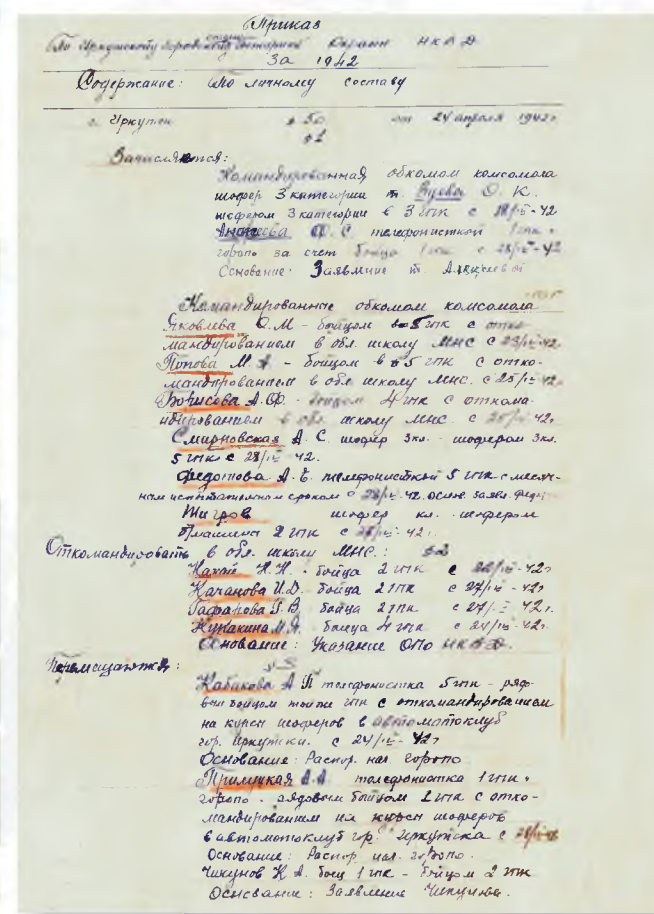 Приказ
По Иркутскому городскому пожарной Охраны НКВД
За 1942
Содержание: По личному составу
г. Иркутск § 50 от 24 апреля 1942г
§1
Зачисляются:
Командированная обкомом комсомола
шофер 3 категории т. О. К.
шофером 3 категории в 3 гпк с -42
С. телефонисткой 1 гпк
горопо за счет бойца с -42
Основание: Заявление т.
Командированные обкомом комсомола
Яковлева О.М - бойцом 5 гпк с отко-
мандированием в обл. школу МНС с 42г
Попова М. А. - бойцом в 5 гпк с отко-
мандированием в обл. школу МНС. с 25/IV-42г
Борисова А.Ф. бойцом 4 гпк с откома-
ндированием в обл. школу МНС. с 42г.
Смирновская А. С. шофер 3кл. - шофером 3кл.
5 гпк с 28/IV 42.
Федотова А. Е. телефонисткой 5 гпк с месяч-
ным испытательном сроком с 42. основ. заявл.
Жигров шофер кл. шофером
2 гпк с 42г.
Откомандировать в обл. школу МНС.: §2
Н.Н. - бойца 2 гпк с 42г
Качанова И.Д. бойца 2 гпк с 27/IV-42г
Гафарова Г.В. бойца 2 гпк с 27/IV 42г.
Кунакина М.Я. бойца 4 гпк с 24/IV-42г
Основание: Указание ОПО НКВД.
Перемещаются: §3
Кабакова А П телефонистка 5 гпк - рядо-
вым бойцом той же гпк с откомандированием
на курсы шоферов в автомотоклуб
гор. Иркутска. с 24/IV-42г
Основание: Распор. нач. горопо
Примицкая А.А. телефонистка 1 гпк
горопо. рядовым бойцом 1 гпк с отко-
мандированием на курсы шоферов
в автомотоклуб гор. Иркутска с
Основание: Распор. нач. горопо.
Чикунов К А. боец 1 гпк - бойцом 2 гпк
Основание: Заявление Чикунова.